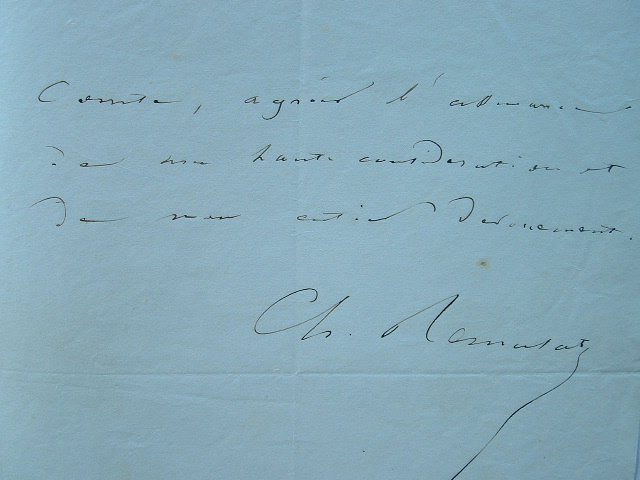 Comte, agréez l'assurance
de ma haute considération et
de mon entier dévouement.
Ch. Remusat